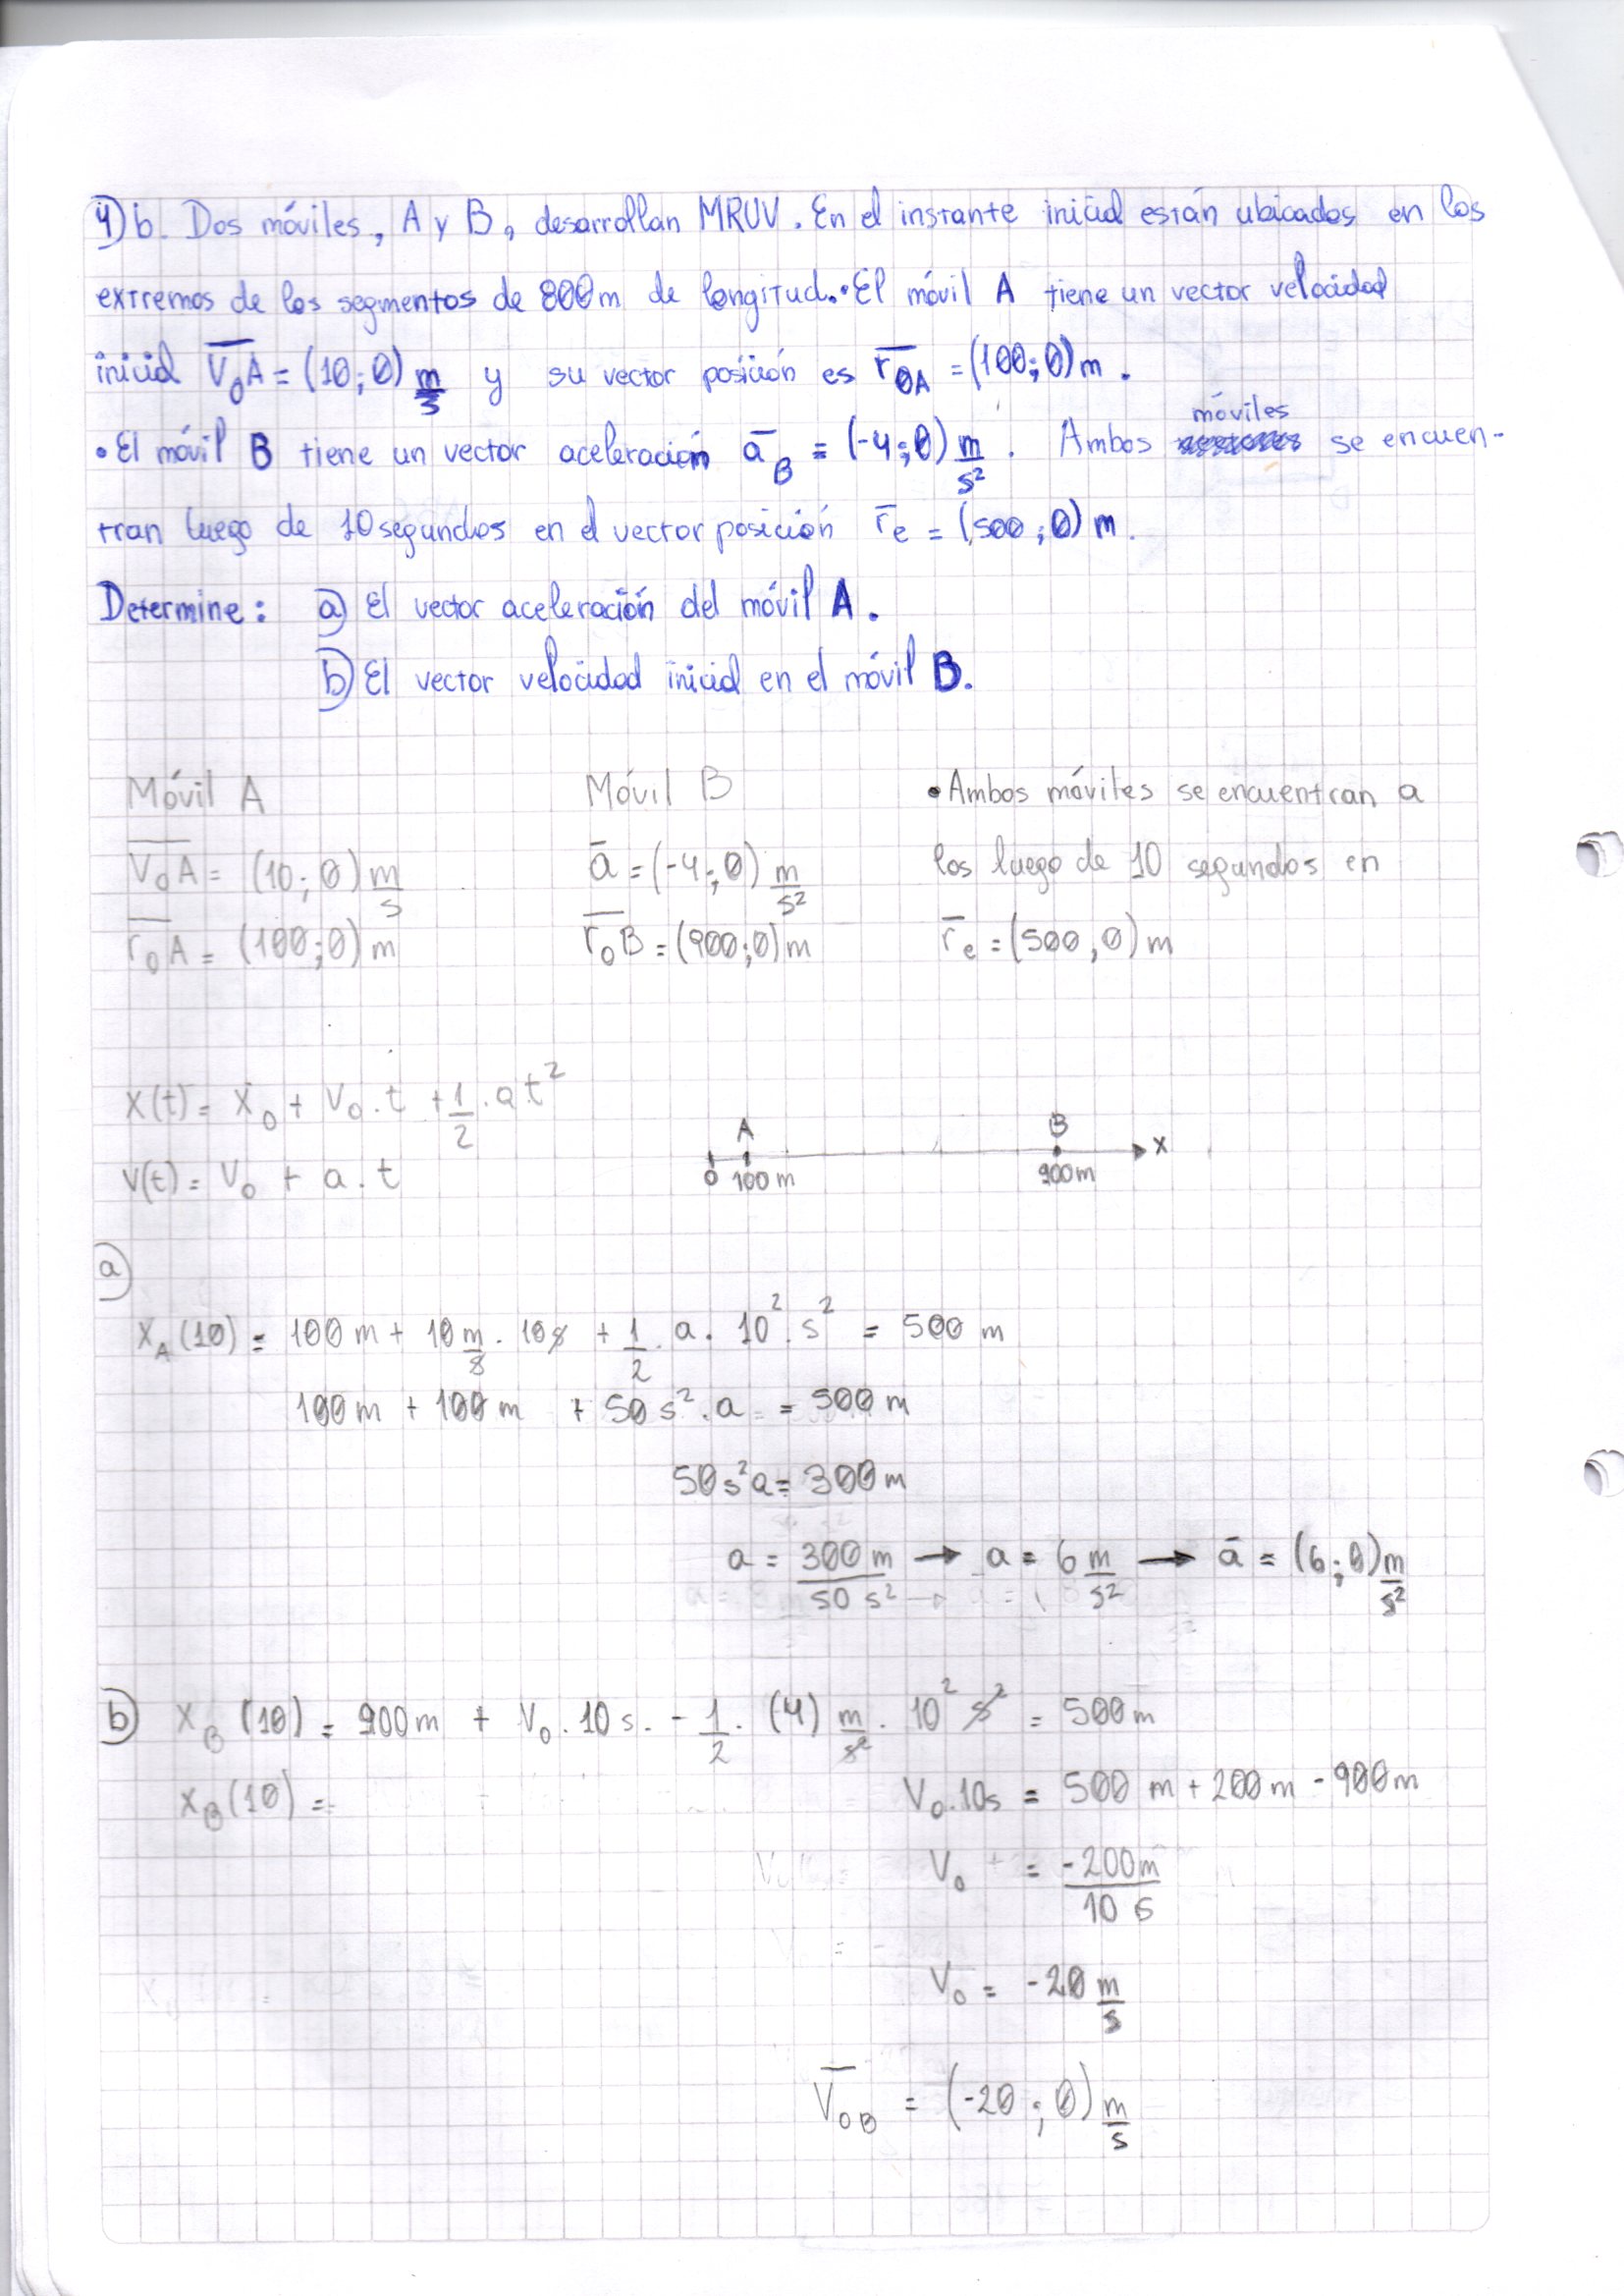 4)b. Dos móviles, A y B, desarrollan MRUV. En el instante inicial están ubicados en los
extremos de los segmentos de 800m de longitud. • El móvil A tiene un vector velocidad
inicial V₀A = (10; 0) m/s y su vector posición es r₀A = (100; 0) m.
• El móvil B tiene un vector aceleración a_B = (-4; 0) m/s². Ambos móviles se encuen-
tran luego de 10 segundos en el vector posición r_e = (500; 0) m.
Determine: a) El vector aceleración del móvil A.
b) El vector velocidad inicial en el móvil B.
Móvil A
V₀A = (10; 0) m/s
r₀A = (100; 0) m
Móvil B
a = (-4; 0) m/s²
r₀B = (900; 0) m
• Ambos móviles se encuentran a
los luego de 10 segundos en
r_e = (500, 0) m
X(t) = X₀ + V₀ . t + 1/2 . a t²
V(t) = V₀ + a . t
A B
0 100 m 900 m x
a)
X_A (10) = 100 m + 10 m/s . 10 s + 1/2 . a . 10² . s² = 500 m
100 m + 100 m + 50 s² . a = 500 m
50 s² a = 300 m
a = 300 m / 50 s² → a = 6 m/s² → a = (6; 0) m/s²
b) X_B (10) = 900 m + V₀ . 10 s . - 1/2 . (4) m/s² . 10² s² = 500 m
X_B (10) =
V₀ . 10s = 500 m + 200 m - 900 m
V₀ = -200 m / 10 s
V₀ = -20 m/s
V₀B = (-20; 0) m/s